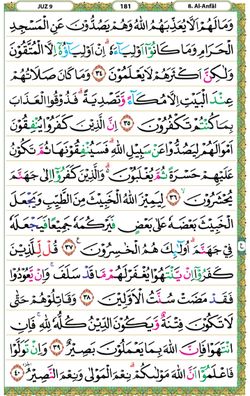 JUZ 9 181 8. Al-Anfâl
وَمَا لَهُمْ اَلَّا يُعَذِّبَهُمُ اللّٰهُ وَهُمْ يَصُدُّوْنَ عَنِ الْمَسْجِدِ
الْحَرَامِ وَمَا كَانُوْٓا اَوْلِيَآءَهٗ ۗ اِنْ اَوْلِيَآؤُهٗٓ اِلَّا الْمُتَّقُوْنَ
وَلٰكِنَّ اَكْثَرَهُمْ لَا يَعْلَمُوْنَ ٣٤ وَمَا كَانَ صَلَاتُهُمْ
عِنْدَ الْبَيْتِ اِلَّا مُكَآءً وَّتَصْدِيَةً ۗ فَذُوْقُوا الْعَذَابَ
بِمَا كُنْتُمْ تَكْفُرُوْنَ ٣٥ اِنَّ الَّذِيْنَ كَفَرُوْا يُنْفِقُوْنَ
اَمْوَالَهُمْ لِيَصُدُّوْا عَنْ سَبِيْلِ اللّٰهِ ۗ فَسَيُنْفِقُوْنَهَا ثُمَّ تَكُوْنُ
عَلَيْهِمْ حَسْرَةً ثُمَّ يُغْلَبُوْنَ ۗ وَالَّذِيْنَ كَفَرُوْٓا اِلٰى جَهَنَّمَ
يُحْشَرُوْنَ ٣٦ لِيَمِيْزَ اللّٰهُ الْخَبِيْثَ مِنَ الطَّيِّبِ وَيَجْعَلَ
الْخَبِيْثَ بَعْضَهٗ عَلٰى بَعْضٍ فَيَرْكُمَهٗ جَمِيْعًا فَيَجْعَلَهٗ
فِيْ جَهَنَّمَ ۗ اُولٰۤىِٕكَ هُمُ الْخٰسِرُوْنَ ٣٧ قُلْ لِّلَّذِيْنَ
كَفَرُوْٓا اِنْ يَّنْتَهُوْا يُغْفَرْ لَهُمْ مَّا قَدْ سَلَفَ ۚ وَاِنْ يَّعُوْدُوْا
فَقَدْ مَضَتْ سُنَّتُ الْاَوَّلِيْنَ ٣٨ وَقَاتِلُوْهُمْ حَتّٰى
لَا تَكُوْنَ فِتْنَةٌ وَّيَكُوْنَ الدِّيْنُ كُلُّهٗ لِلّٰهِ ۚ فَاِنِ
انْتَهَوْا فَاِنَّ اللّٰهَ بِمَا يَعْمَلُوْنَ بَصِيْرٌ ٣٩ وَاِنْ تَوَلَّوْا
فَاعْلَمُوْٓا اَنَّ اللّٰهَ مَوْلٰىكُمْ ۗ نِعْمَ الْمَوْلٰى وَنِعْمَ النَّصِيْرُ ٤٠